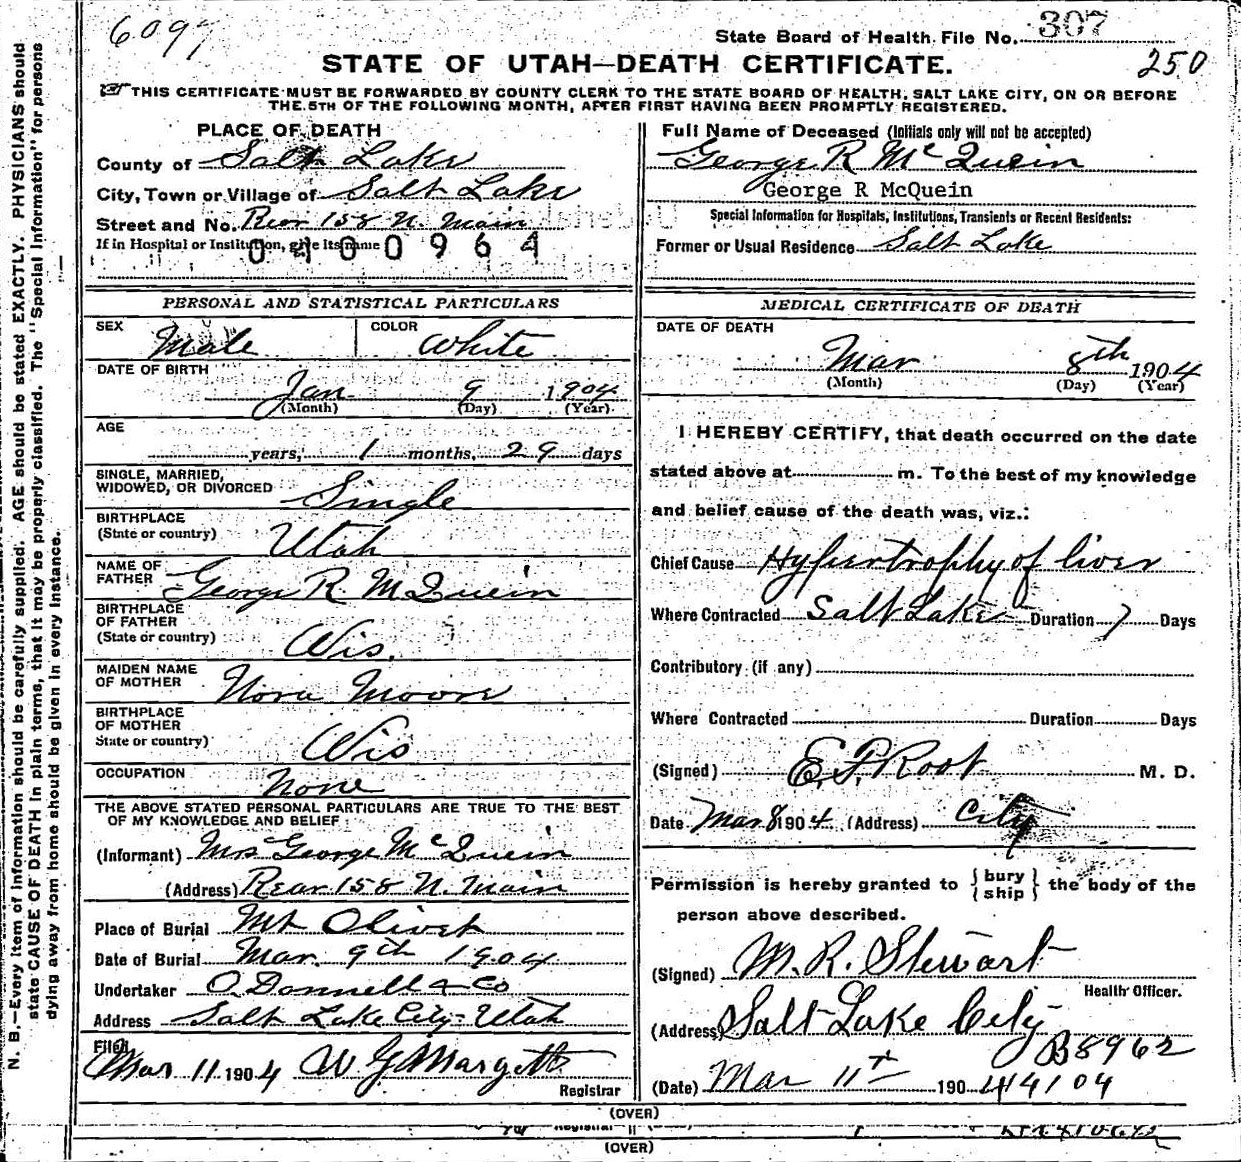 6097
State Board of Health File No. 307
250
STATE OF UTAH—DEATH CERTIFICATE.
THIS CERTIFICATE MUST BE FORWARDED BY COUNTY CLERK TO THE STATE BOARD OF HEALTH, SALT LAKE CITY, ON OR BEFORE
THE 5TH OF THE FOLLOWING MONTH, AFTER FIRST HAVING BEEN PROMPTLY REGISTERED.
N. B.—Every item of information should be carefully supplied. AGE should be stated EXACTLY. PHYSICIANS should
state CAUSE OF DEATH in plain terms, that it may be properly classified. The "Special Information" for persons
dying away from home should be given in every instance.
PLACE OF DEATH
County of Salt Lake
City, Town or Village of Salt Lake
Street and No. Rear 158 N. Main
If in Hospital or Institution, give its name
0400964
PERSONAL AND STATISTICAL PARTICULARS
SEX Male COLOR White
DATE OF BIRTH
Jan 9 1904
(Month) (Day) (Year)
AGE
years, 1 months, 29 days
SINGLE, MARRIED,
WIDOWED, OR DIVORCED Single
BIRTHPLACE
(State or country) Utah
NAME OF
FATHER George R. McQuein
BIRTHPLACE
OF FATHER
(State or country) Wis.
MAIDEN NAME
OF MOTHER Nora Moore
BIRTHPLACE
OF MOTHER
State or country) Wis
OCCUPATION None
THE ABOVE STATED PERSONAL PARTICULARS ARE TRUE TO THE BEST
OF MY KNOWLEDGE AND BELIEF
(Informant) Mrs George McQuein
(Address) Rear 158 N. Main
Place of Burial Mt Olivet
Date of Burial Mar. 9th 1904
Undertaker O. Donnell & Co
Address Salt Lake City Utah
Filed
Mar 11 1904 W G Margetts
Registrar
Full Name of Deceased (Initials only will not be accepted)
George R McQuein
George R McQuein
Special Information for Hospitals, Institutions, Transients or Recent Residents:
Former or Usual Residence Salt Lake
MEDICAL CERTIFICATE OF DEATH
DATE OF DEATH
Mar 8th 1904
(Month) (Day) (Year)
I HEREBY CERTIFY, that death occurred on the date
stated above at m. To the best of my knowledge
and belief cause of the death was, viz.:
Chief Cause Hypertrophy of liver
Where Contracted Salt Lake Duration 7 Days
Contributory (if any)
Where Contracted Duration Days
(Signed) E. F. Root M. D.
Date Mar 8 1904 (Address) City
Permission is hereby granted to { bury ship } the body of the
person above described.
(Signed) M. R. Stewart
Health Officer.
(Address) Salt Lake City
B8962
(Date) Mar 11th 1904 44104
(OVER)
Registrar
(OVER)